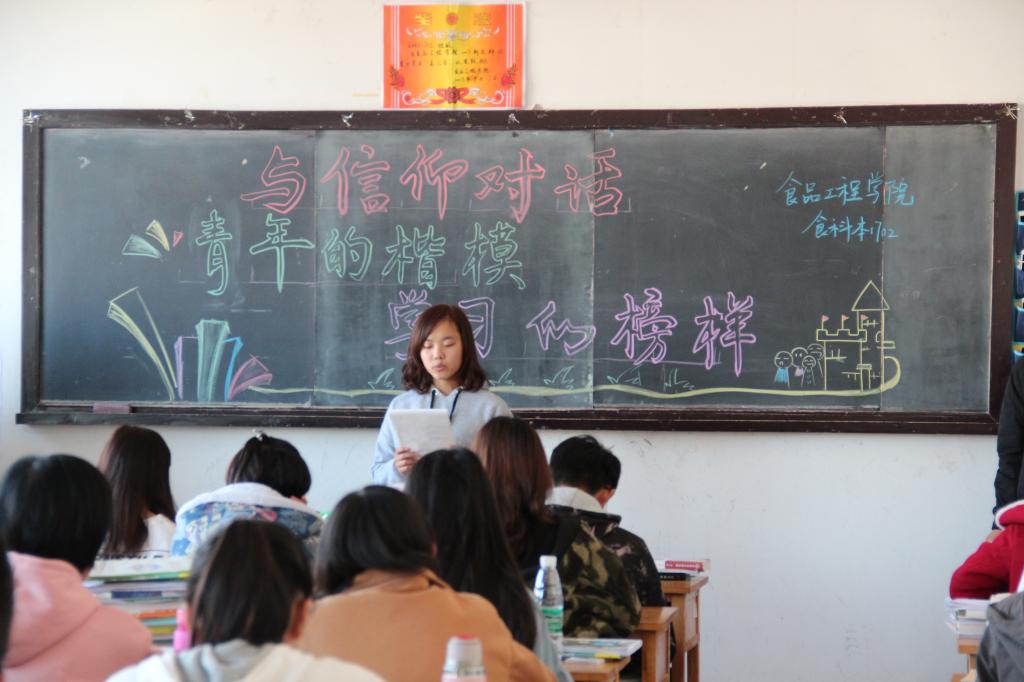 与信仰对话
食品工程学院
食科本1702
青年的楷模
学习的榜样